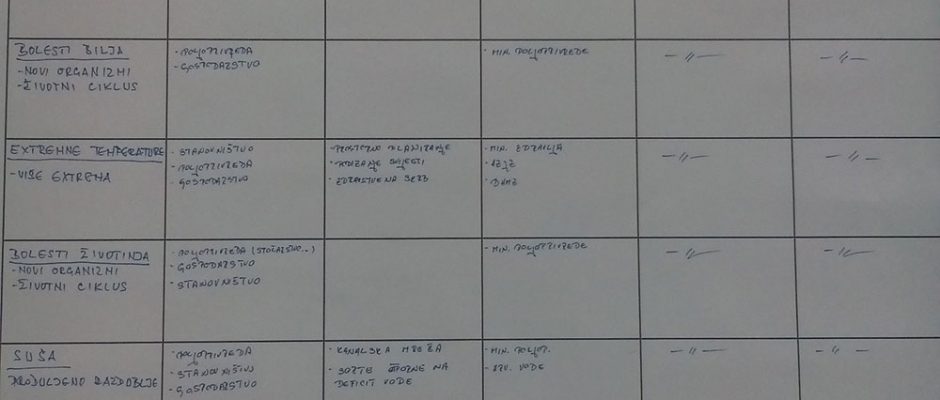 BOLESTI BILJA
-NOVI ORGANIZMI
-ŽIVOTNI CIKLUS
·POLJOPRIVREDA
·GOSPODARSTVO
·MIN. POLJOPRIVREDE
-//-
-//-
EXTREMNE TEMPERATURE
-VIŠE EXTREMA
·STANOVNIŠTVO
·POLJOPRIVREDA
·GOSPODARSTVO
·PROSTORNO PLANIRANJE
·PODIZANJE SVIJESTI
·ZDRAVSTVENA SKRB
·MIN. ZDRAVLJA
·DHMZ
-//-
-//-
BOLESTI ŽIVOTINJA
-NOVI ORGANIZMI
-ŽIVOTNI CIKLUS
·POLJOPRIVREDA (STOČARSTVO...)
·GOSPODARSTVO
·STANOVNIŠTVO
·MIN. POLJOPRIVREDE
-//-
-//-
SUŠA
PRODULJENO RAZDOBLJE
·POLJOPRIVREDA
·STANOVNIŠTVO
·GOSPODARSTVO
·KANALSKA MREŽA
·SORTE OTPORNE NA
DEFICIT VODE
·MIN. POLJOP.
·HRV. VODE
-//-
-//-